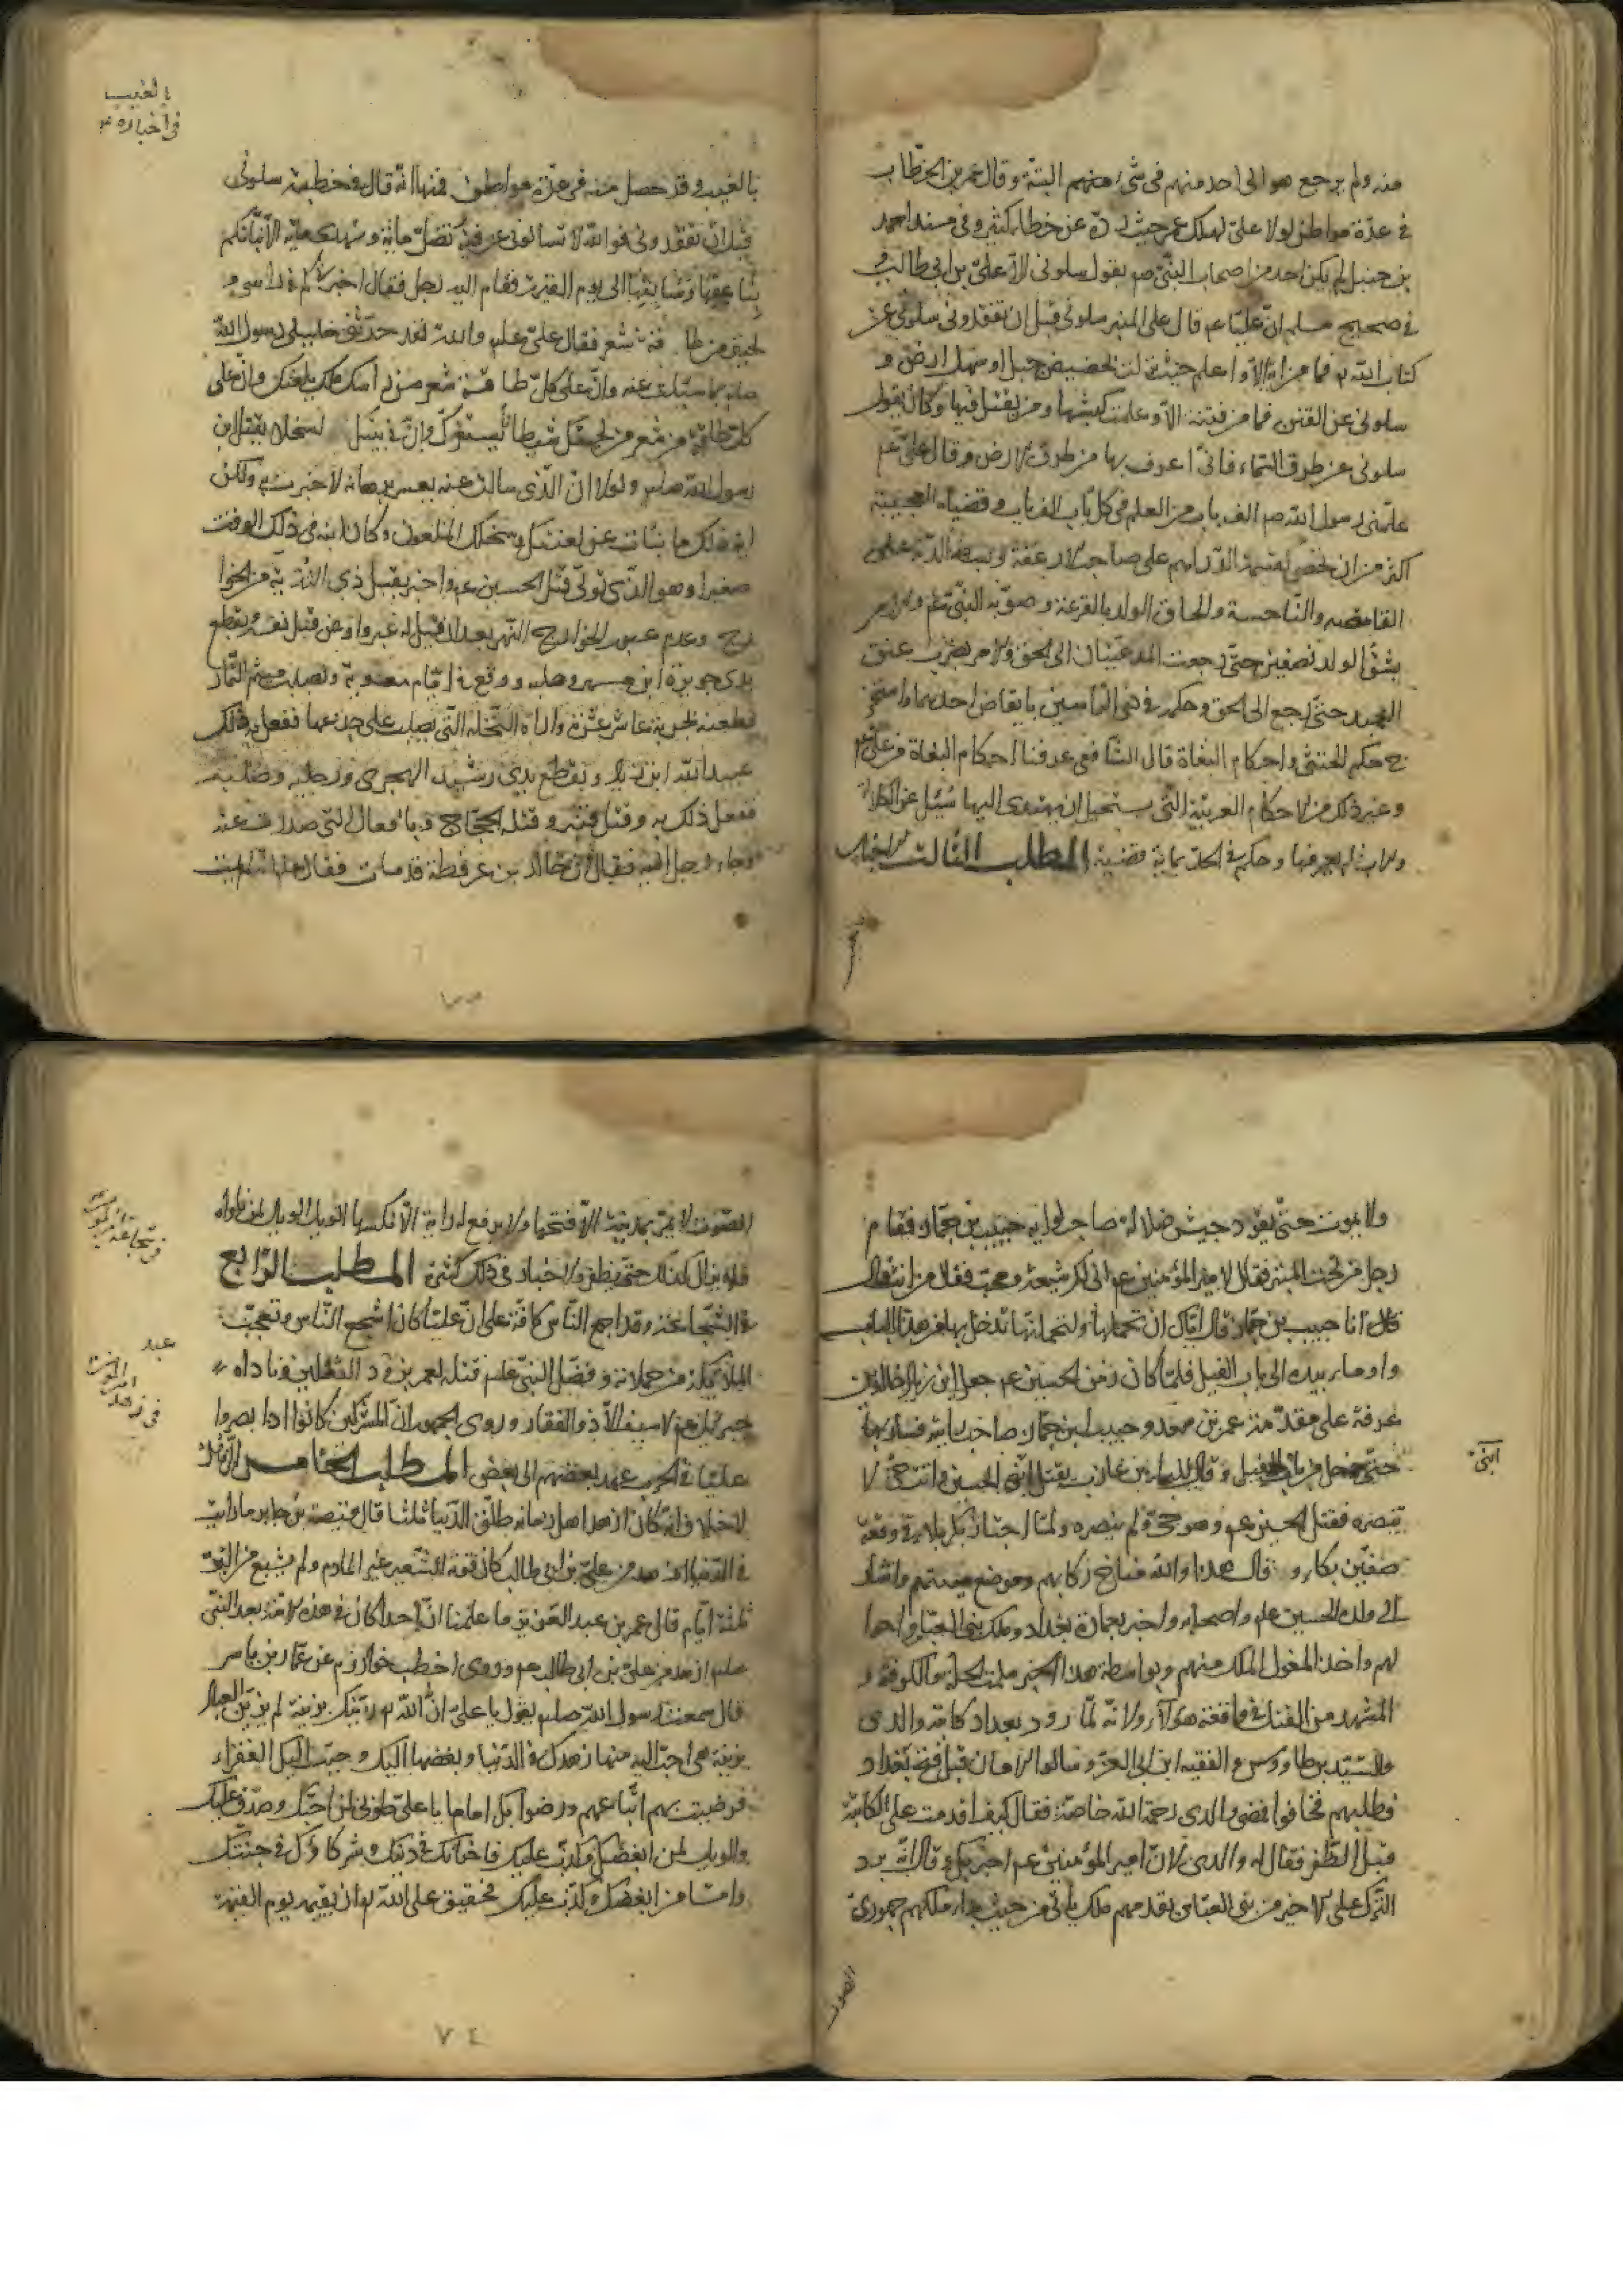 منه ولم يرجع هو الى احد منهم فى شئ منهم البتة وقال عمر بن الخطاب
فى عدّة مواطن لولا علىّ لهلك عمر حيث ردّه عن خطاء كثير وفى مسند احمد
بن حنبل لم يكن احد من اصحاب النبىّ صم يقول سلونى الا علىّ بن ابى طالب و
فى صحيح مسلم انّ عليّا عم قال على المنبر سلونى قبل ان تفقدونى سلونى عن
كتاب الله فما من اية الا واعلم حيث نزلت بحضيض جبل او سهل ارض و
سلونى عن الفتن فما من فتنة الا وعلمت كبشها ومن يقتل فيها وكان يقول
سلونى عن طرق السماء فانى اعرف بها من طرق الارض وقال علىّ عم
علّمنى رسول الله صم الف باب من العلم فى كل باب الف باب وقضاياه العجيبة
اكثر من ان تحصى كقسمة الدراهم على صاحب الارغفة وبسط الدية على
القامصة والناخسة والحاق الولد بالقرعة وصوّبه النبى عم والامر
بشقّ الولد نصفين حتى رجعت المدعيتان الى الحق والامر بضرب عنق
العبد حتى رجع الى الحق وحكمه فى ذى الراسين بايقاض احدهما واستخر
ج حكم الخنثى واحكام البغاة قال الشافعى عرفنا احكام البغاة من علىّ عم
وغير ذلك من الاحكام الغريبة التى يستحيل ان يهتدى اليها سئل عن الكلالة
والاب فلم يعرفها وحكم فى الجدّ بماية قضية المطلب الثالث الاخبار
بالغيب
فى اخباره
بالغيب وقد حصل منه فى عدّة مواطن فمنها انه قال فى خطبته سلونى
قبل ان تفقدونى فوالله لا تسالونى عن فئة تضلّ ماية وتهدى ماية الا نبّأتكم
بناعقها وسايقها الى يوم القيمة فقام اليه رجل فقال اخبرنى كم فى راسى و
لحيتى من طاقة شعر فقال علىّ علم والله لقد حدّثنى خليلى رسول الله
صلم بما سالت عنه وانّ على كلّ طاقة شعر من راسك ملك يلعنك وانّ على
كل طاقة من شعر من لحيتك شيطانا يستفزك وانّ فى بيتك لسخلا يقتل ابن
رسول الله صلم ولولا انّ الذى سالت عنه يعسر برهانه لاخبرت به ولكن
اية ذلك ما نبات عن لعنتك وسخلك الملعون وكان ابنه فى ذلك الوقت
صغيرا وهو الذى تولّى قتل الحسين عم واخبر بقتل ذى الثدية من الخوا
رج وعدم عبور الخوارج النهر بعد ان قيل له عبروا وعن قتل نفسه وبقطع
يدى جويرة ابن مسهر وصلبه ووقع فى ايّام معوية وبصلب ميثم التمّار
وطعنه بحربة عاشر عشرة واراه النخلة التى يصلب على جذعها ففعل به ذلك
عبيد الله ابن زياد وبقطع يدى رشيد الهجرى ورجليه وصلبه
ففعل ذلك به وقتل قنبر وقتله الحجّاج وبافعال التى صدرت عنه
وجاء رجل اليه فقال انّ خالد بن عرفطة قد مات فقال علم انه لم يمت
ولا يموت حتّى يقود جيش ضلالة صاحب لوايه حبيب بن جمّاز فقام
رجل من تحت المنبر فقال لامير المؤمنين عم انى لك شيعة ومحبّ فقال من انت قال
قال انا حبيب بن جمّاز قال ايّاك ان تحملها ولتحملنّها تدخل بها من هذا الباب
واومأ بيده الى باب الفيل فلمّا كان زمن الحسين عم جعل ابن زياد خالد بن
عرفة على مقدّمة عمر بن سعد وحبيب ابن جمّاز صاحب رايته فسار بها
حتى دخل من باب الفيل وقال للبراء بن عازب يقتل ابنى الحسين وانت حىّ لا
ابنى
تنصره فقتل الحسين عم وهو حىّ ولم ينصره ولمّا اجتاز بكربلا فى وقعة
صفّين بكا وقال هذا والله مناخ ركابهم وموضع منيّتهم واشار
الى ولده الحسين علم واصحابه واخبر بعمارة بغداد وملك بنى العبّاس واحوا
لهم واخذ المغول الملك منهم وبواسطة هذا الخبر سلمت الحلّة والكوفة و
المشهد من القتل فى واقعة هولاكو لانه لمّا ورد بغداد كاتبه والدى
والسيّد بن طاووس والفقيه ابن ابى العزّ وسالوا الامان قبل فتح بغداد
وطلبهم فخافوا فمضى والدى رحمة الله خاصّة فقال كيف اقدمت على المكاتبة
قبل الظفر فقال له والدى لانّ امير المؤمنين عم اخبر بك وقال انّه يرد
الترك على الاخير من بنى العبّاس يقدمهم ملك ياتى من حيث بدا ملكهم جهورى
الصوت
الصوت لا يمرّ بمدينة الا فتحها ولا يرفع له راية الا نكسها الويل الويل لمن ناواه
فلا يزال كذلك حتى يظفر والاخبار فى ذلك كثيرة المطلب الرابع
فى الشجاعة وقد اجمع الناس كافّة على انّ عليّا كان اشجع الناس وتعجّبت
الملائكة من حملاته وفضّل النبى علم قتله لعمر بن ود الثقلين وناداه
جبرئيل عم لا سيف الا ذو الفقار وروى الجمهور انّ المشركين كانوا اذا بصروا
عليّا فى الحرب عهد بعضهم الى بعض المطلب الخامس فى الزهد
لا خلاف انه كان ازهد اهل زمانه طلّق الدنيا ثلثا قال قبيصة بن جابر ما رايت
فى الدنيا ازهد من علىّ بن ابى طالب كان قوته الشعير غير المادوم ولم يشبع من البرّ
ثلثة ايّام قال عمر بن عبد العزيز ما علمنا انّ احدا كان فى هذه الامة بعد النبى
صلم ازهد من علىّ بن ابى طالب عم وروى اخطب خوارزم عن عمّار بن ياسر
قال سمعت رسول الله صلم يقول يا علىّ انّ الله زيّنك بزينة لم يزيّن العباد
بزينة هى احبّ اليه منها زهدك فى الدنيا وبغضها اليك وحبّب اليك الفقراء
فرضيت بهم اتباعهم ورضوا بك اماما يا علىّ طوبى لمن احبّك وصدّق عليك
والويل لمن ابغضك وكذب عليك فاخوانك فى دينك وشركاؤك فى جنّتك
وامّا من ابغضك وكذب عليك فحقيق على الله ان يقيمه يوم القيمة
٧٤